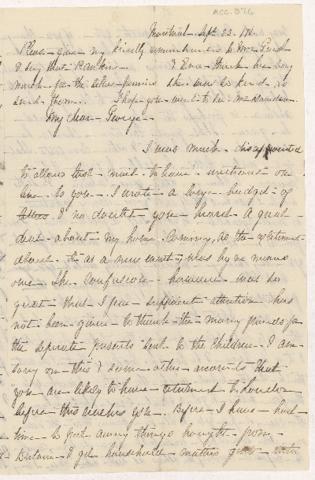 ACC. 826
Montreal - Sept 22. 186
Please - give my kindly remembrances to Mrs
& say that & Eva - thank her very
much for the little she was so kind to
send them. I hope you went to see Mrs Davidson.
My dear George -
I was much disappointed
to allow that mail to leave without one
line to you - I wrote a large budget of
letters & no doubt you heard a good
deal about my home Coming, as the
about it as a new event was by no means
one. The confusion however was so
great that I fear sufficient attention has
not been given to thank the many friends for
the separate presents sent to the children. I am
sorry on this & some other accounts that
you are likely to have returned to London
before this reaches you. Before I have had
time to put away things bought from
Britain & get household matters